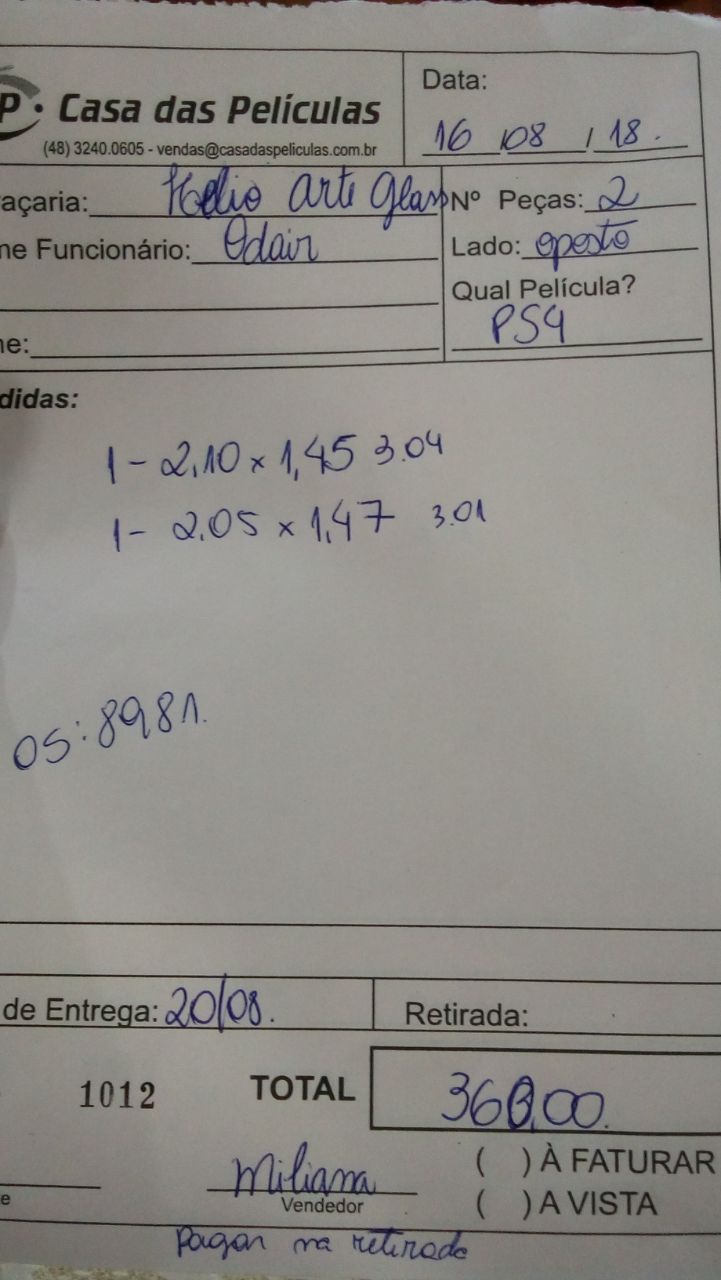 P. Casa das Películas
(48) 3240.0605 - vendas@casadaspeliculas.com.br
Data:
16/08/18.
açaria: Helio Arte Glass
Nº Peças: 2
me Funcionário: Odair
Lado: oposto
Qual Película?
PS4
ne:
didas:
1 - 2,10 x 1,45 3.04
1 - 2,05 x 1,47 3.01
OS: 8981.
de Entrega: 20/08.
Retirada:
1012
TOTAL
360,00.
Miliana
( ) À FATURAR
e
Vendedor
( ) A VISTA
Pagar na retirada